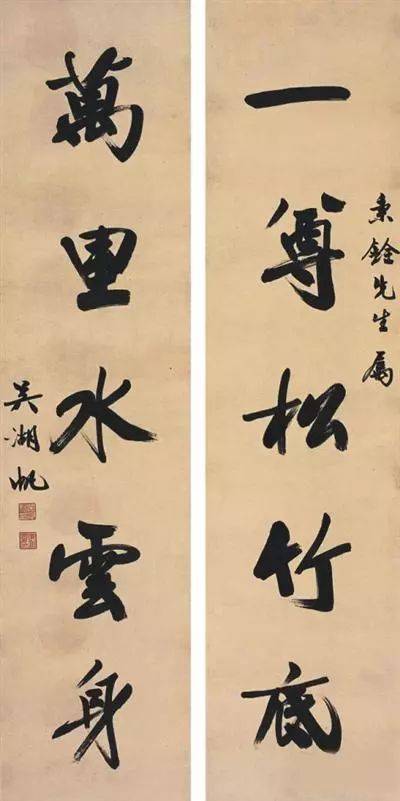 秉銓先生属
一尊松竹底
萬里水雲身
吳湖帆